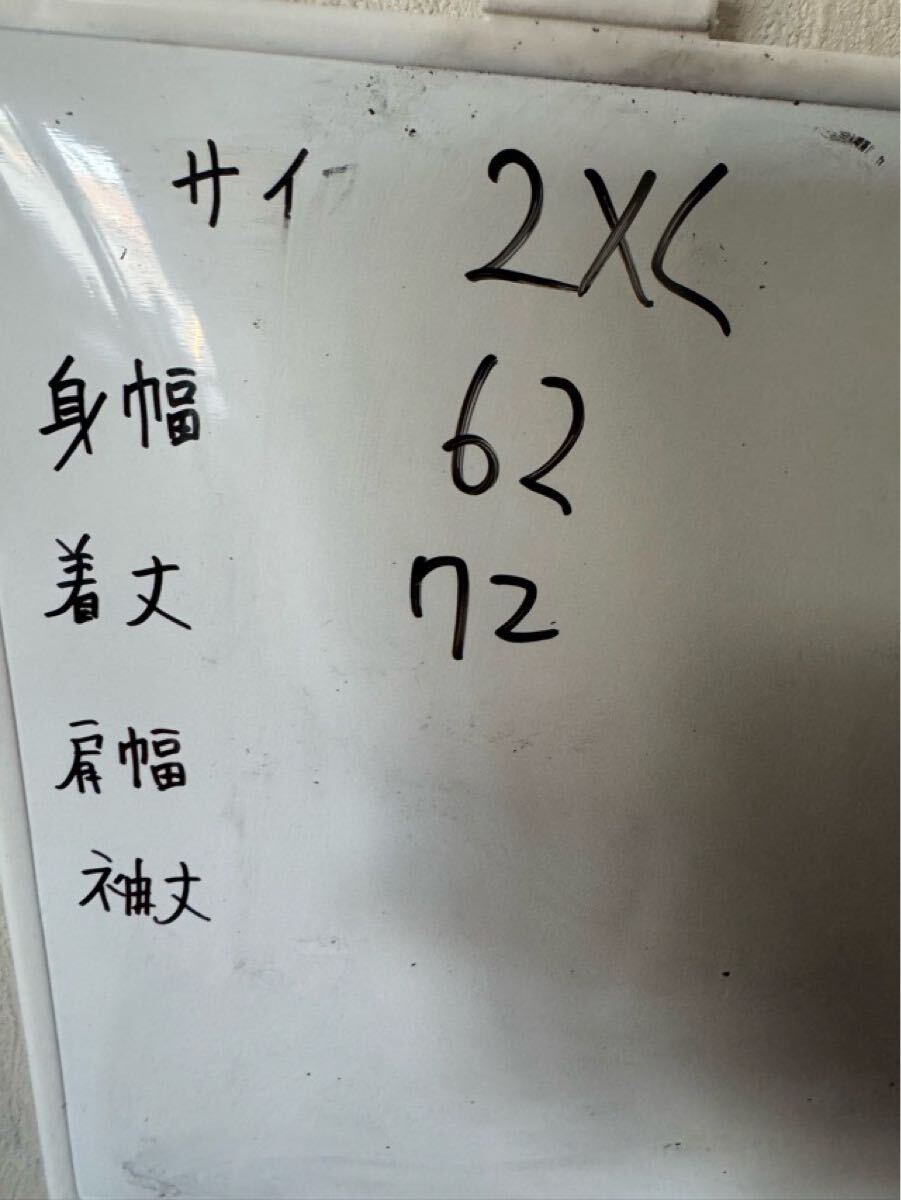 サイ 2XL
身幅 62
着丈 72
肩幅
袖丈